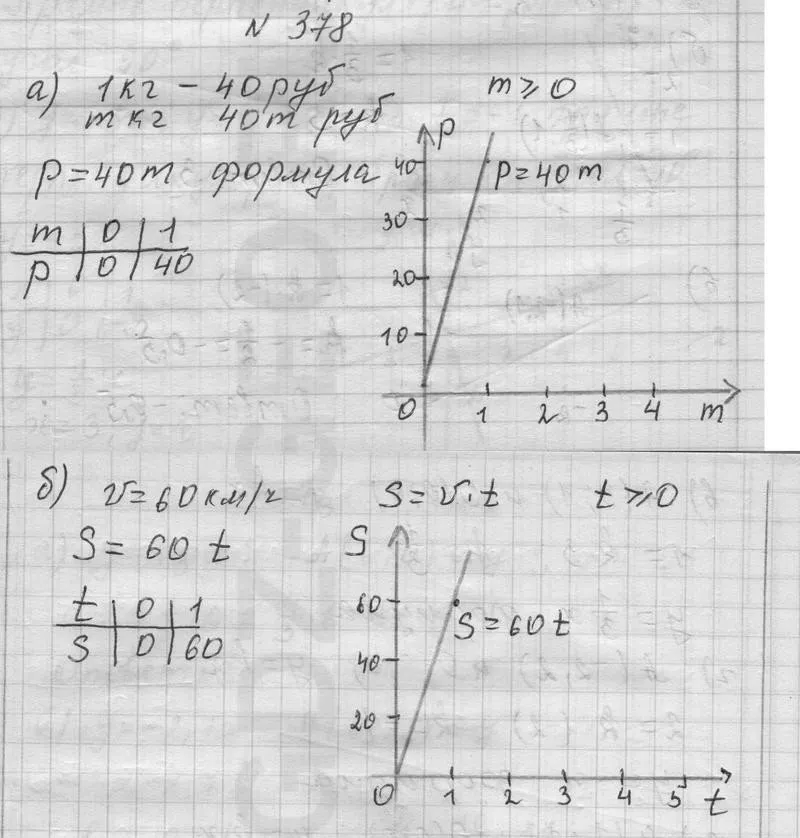 N 378
а) 1кг – 40 руб m ≥ 0
m кг 40m руб
p = 40m формула
m | 0 | 1
p | 0 | 40
p
40
30
20
10
0 1 2 3 4 m
p = 40m
б) v = 60 км/ч S = v·t t ≥ 0
S = 60 t
t | 0 | 1
S | 0 | 60
S
60
40
20
0 1 2 3 4 5 t
S = 60 t